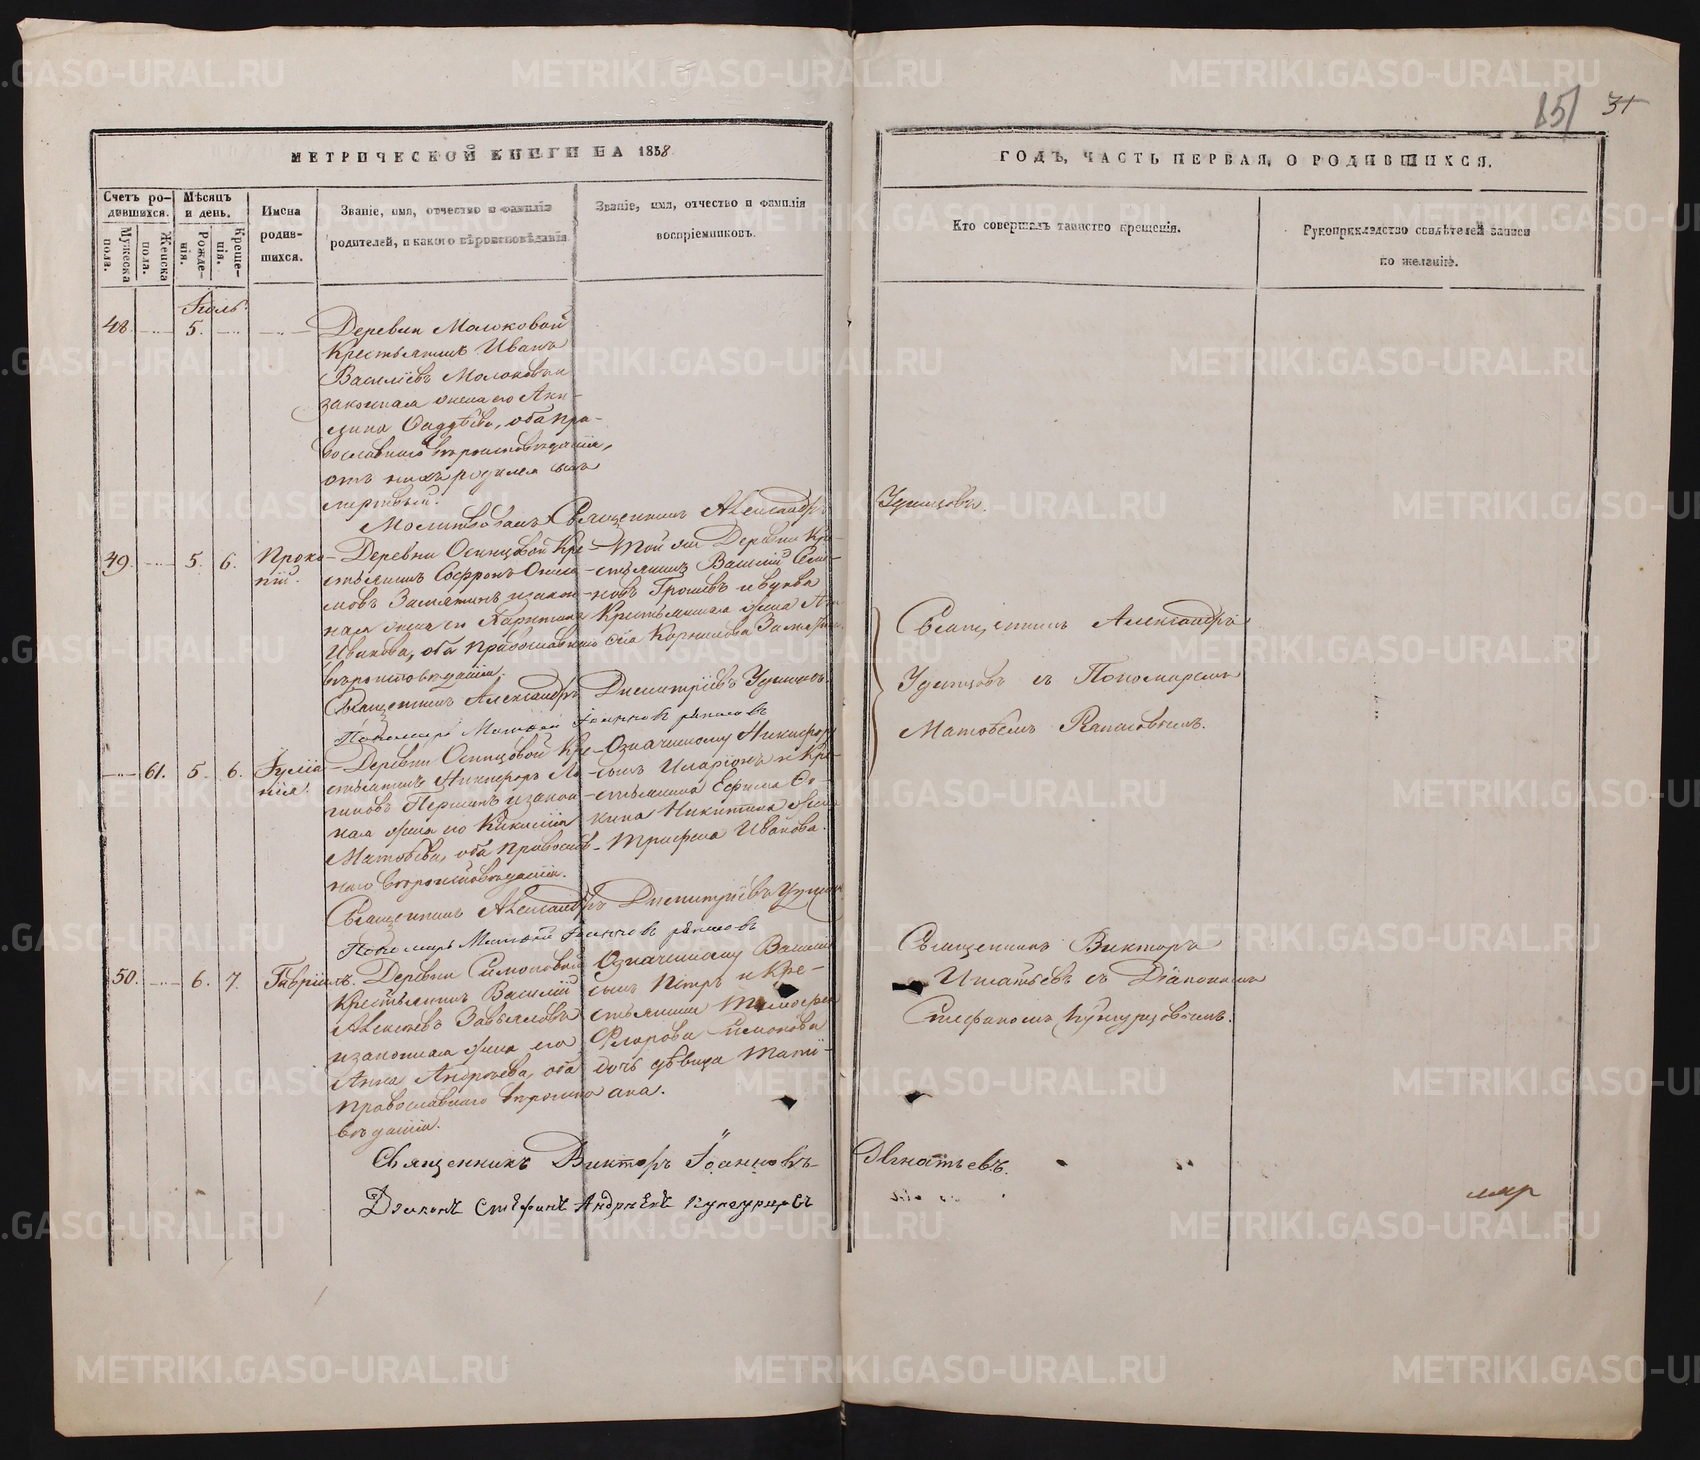 151 31
МЕТРИЧЕСКОЙ КНИГИ НА 1858
ГОДЪ, ЧАСТЬ ПЕРВАЯ, О РОДИВШИХСЯ.
Счетъ ро-
дившихся.
Мужеска пола.
Женска пола.
Мѣсяцъ
и день.
Рожде-
нія.
Креще-
нія.
Имена
родив-
шихся.
Званіе, имя, отчество и фамилія
родителей, и какого вѣроисповѣданія.
Званіе, имя, отчество и фамилія
воспріемниковъ.
Кто совершалъ таинство крещенія.
Рукоприкладство свидѣтелей записи
по желанію.
Іюль.
48. 5.
Деревни Молоковой
Крестьянинъ Иванъ
Василіевъ Молоковъ и
законная жена его Аки-
лина Фаддѣева, оба пра-
вославнаго вѣроисповѣданія,
отъ нихъ родился сынъ
мертвый.
Молитвовалъ Священникъ Александръ
Удинцовъ.
49. 5. 6. Проко-
пій.
Деревни Осинцовой Кре-
стьянинъ Софронъ
Замятинъ и закон-
ная жена его
Иванова, оба православнаго
вѣроисповѣданія.
Той же Деревни Кре-
стьянинъ Василій
и вдова
Крестьянская жена
Корнилова
Священникъ Александръ
Удинцовъ съ Пономаремъ
Матвѣемъ
Священникъ Александръ Димитріевъ Удинцовъ.
Пономарь Матвѣй Іоанновъ
61. 5. 6. Іуліа-
нія.
Деревни Осинцовой Кре-
стьянинъ Никифоръ Ло-
гиновъ Першинъ и закон-
ная жена его Кикилія
Матвѣева, оба православ-
наго вѣроисповѣданія.
Означенному Никифору
сынъ Иларіонъ и Кре-
стьянина Ефима
Никитина жена
Трифена Иванова.
Священникъ Александръ Димитріевъ Удинцовъ
Пономарь Матвѣй Іоанновъ
50. 6. 7. Гавріилъ.
Деревни Симоновой
Крестьянинъ Василій
Алексѣевъ Завьяловъ
и законная жена его
Анна Андреева, оба
православнаго вѣроиспо-
вѣданія.
Означенному Василію
сынъ Петръ и Кре-
стьянина Тимофея
Флорова Симонова
дочь дѣвица Тати-
ана.
Священникъ Викторъ
Игнатьевъ съ Діакономъ
Стефаномъ Кунгурцовымъ.
Священникъ Викторъ Іоанновъ
Игнатьевъ.
Діаконъ Стефанъ Андреевъ Кунгурцовъ
METRIKI.GASO-URAL.RU